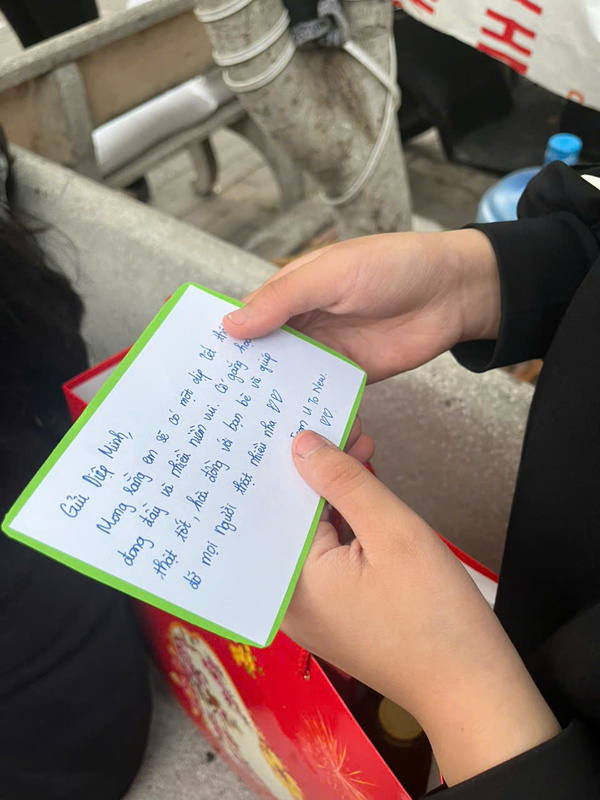 Gửi Diệp Minh,
Mong rằng em sẽ có một dịp Tết
đong đầy và nhiều niềm vui. Cố gắng
thật tốt, hài đồng với bạn bè và giúp
đỡ mọi người thật nhiều nha ♡♡
U To New.
♡♡